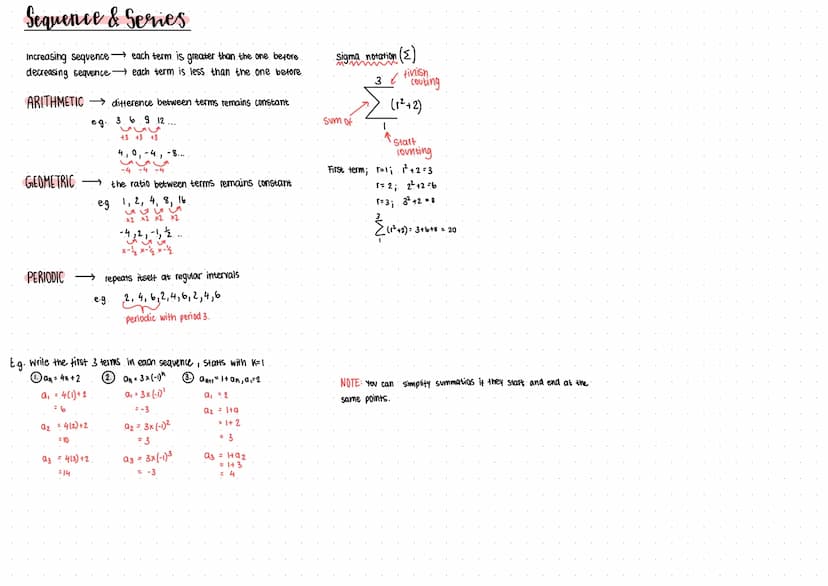 Sequence & Series
Increasing sequence → each term is greater than the one before
decreasing sequence → each term is less than the one before
ARITHMETIC → difference between terms remains constant
eg. 3 6 9 12 ...
+3 +3 +3
4, 0, -4, -8...
-4 -4 -4
GEOMETRIC → the ratio between terms remains constant
eg 1, 2, 4, 8, 16
x2 x2 x2 x2
-4, 2, -1, ½ ..
x-½ x-½ x-½
PERIODIC → repeats itself at regular intervals
eg 2, 4, 6, 2, 4, 6, 2, 4, 6
periodic with period 3.
Sigma notation (Σ)
finish
couting
3
Σ (r²+2)
1
sum of
start
counting
First term; r=1; 1²+2=3
r=2; 2²+2=6
r=3; 3²+2=8
3
Σ(r²+2) = 3+6+8 = 20
1
Eg. Write the first 3 terms in each sequence, starts with K=1
① an = 4n+2 ② an = 3x(-1)ⁿ ③ an+1 = 1+an, a1=2
a1 = 4(1)+2 a1 = 3x(-1)¹ a1 = 2
=6 =-3 a2 = 1+a
a2 = 4(2)+2 a2 = 3x(-1)² = 1+2
=10 =3 = 3
a3 = 4(3)+2 a3 = 3x(-1)³ a3 = 1+a2
=14 = -3 = 1+3
= 4
NOTE: You can simplify summatios if they start and end at the
same points.